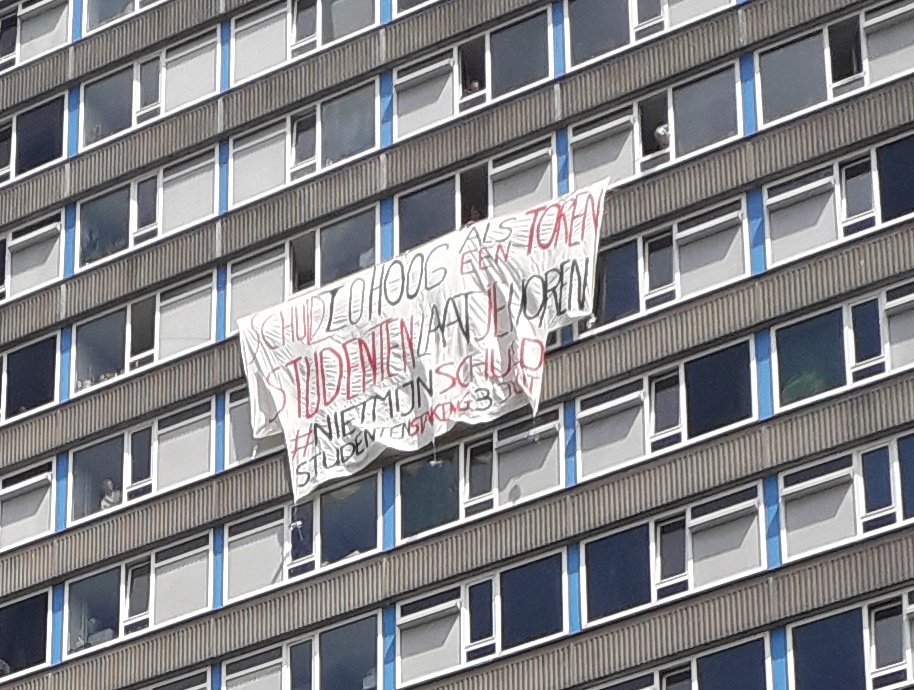 SCHULD ZO HOOG ALS EEN TOREN
STUDENTEN LAAT JE HOREN!
#NIETMIJNSCHULD
STUDENTENSTAKING 3 JULI